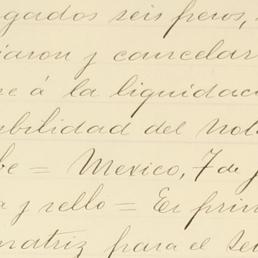 gados seis pesos,
iaron y cancelar
re á la liquidaci
bilidad del Not
be = Mexico, 7 de
a y sello = Es prim
matriz para el Se